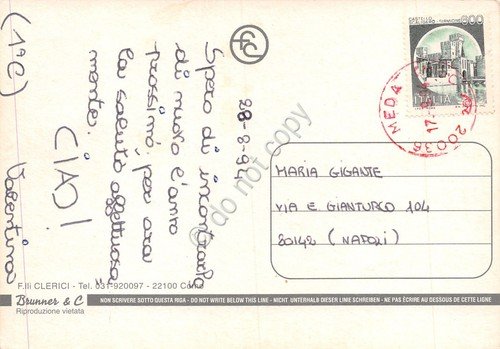 (1ª C)
Spero di incontrarla
di nuovo l'anno
prossimo, per ora
la saluto affettuosa
mente.
CIAO!
Valentina
28-8-94
MARIA GIGANTE
VIA E. GIANTURCO 104
80142 (NAPOLI)
600
ITALIA
MEDA
20036
do not copy
F.lli CLERICI - Tel. 031-920097 - 22100 Como
Brunner & C
Riproduzione vietata
NON SCRIVERE SOTTO QUESTA RIGA - DO NOT WRITE BELOW THIS LINE - NICHT UNTERHALB DIESER LINIE SCHREIBEN - NE PAS ÉCRIRE AU DESSOUS DE CETTE LIGNE